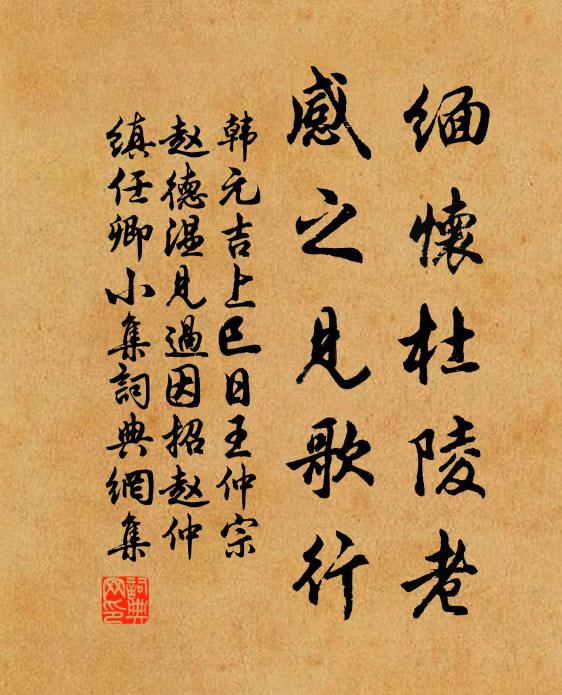 缅懷杜陵老
感之見歌行
韩元吉上巳日王仲宗
赵德温見過因招赵仲
缜任卿小集詞典網集
詞典网印